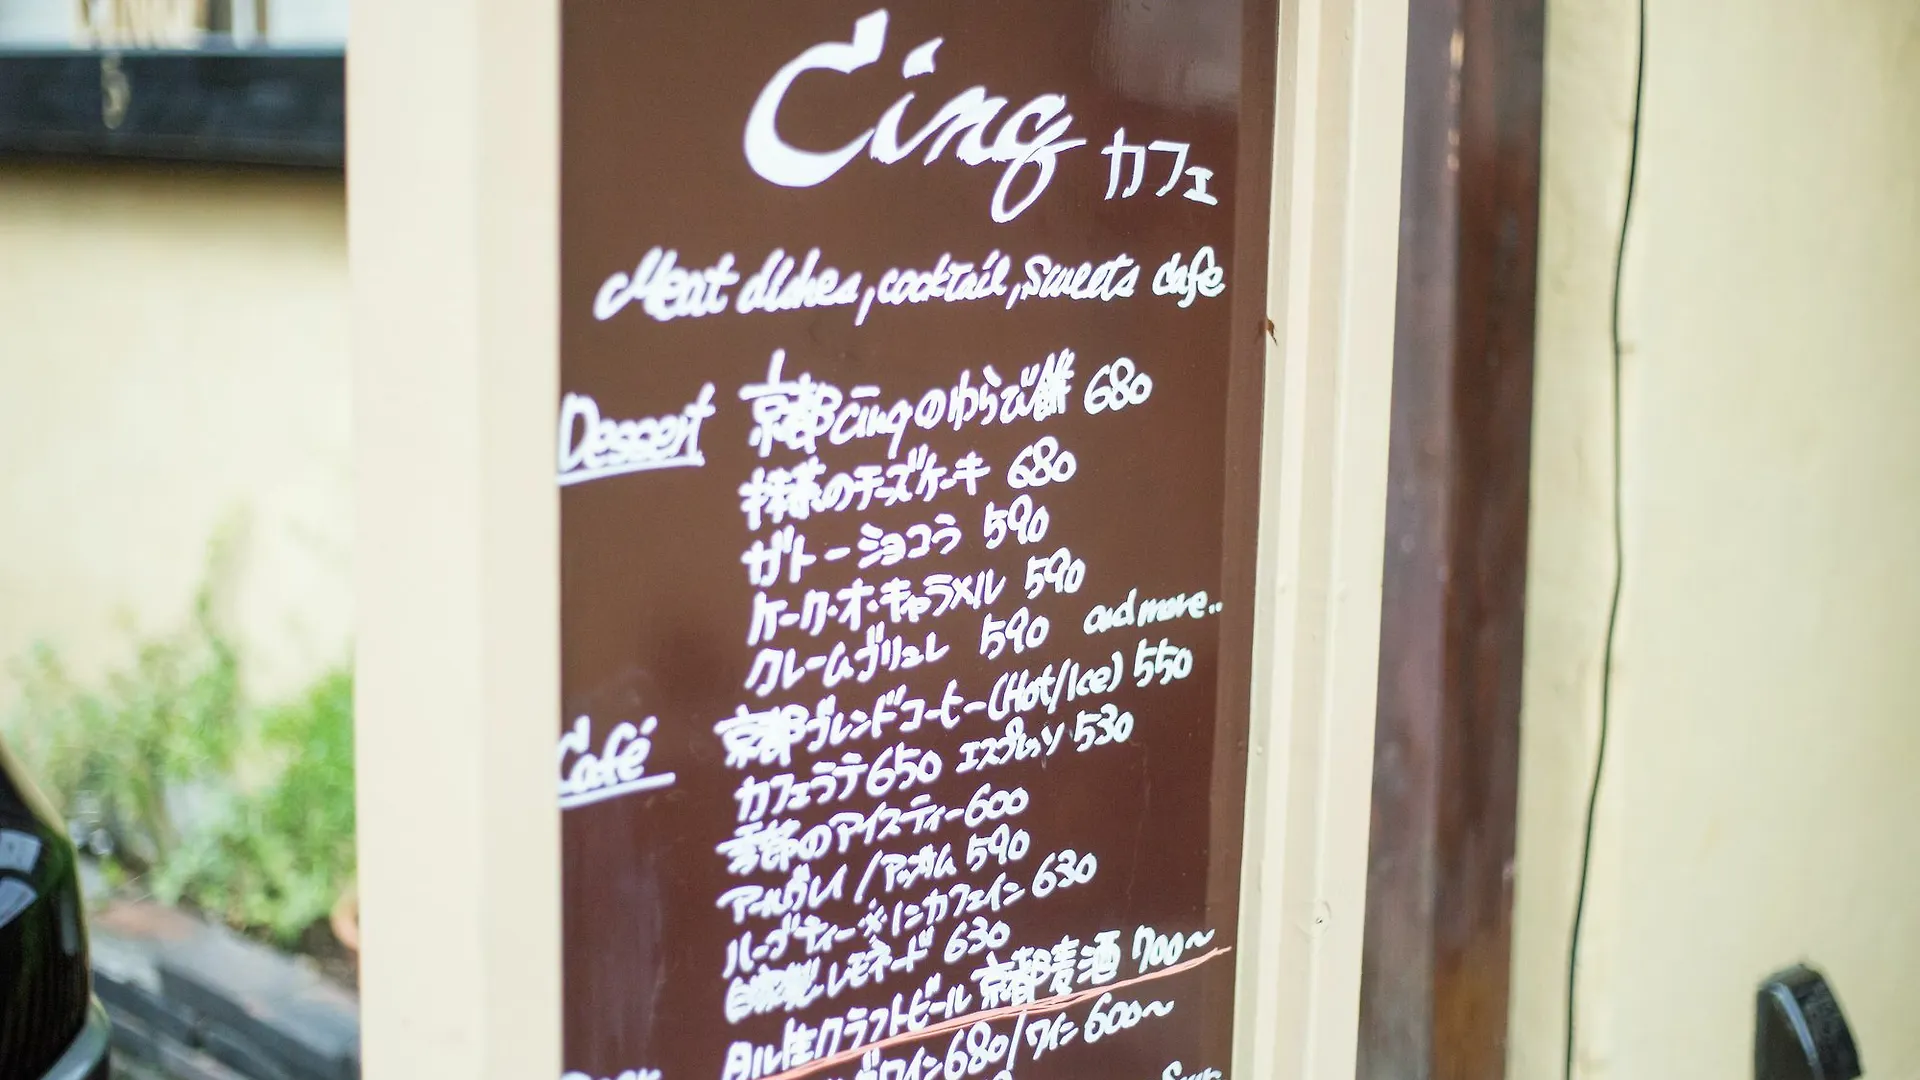 Cinq カフェ
Meat dishes, cocktail, Sweets cafe
Dessert 京都cinqのわらび餅 680
抹茶のチーズケーキ 680
ガトーショコラ 590
ケーク・オ・キャラメル 590
クレームブリュレ 590 and more..
Café 京都ブレンドコーヒー(Hot/Ice) 550
カフェラテ650 エスプレッソ 530
季節のアイスティー600
アールグレイ/アッサム 590
ハーブティー※ノンカフェイン 630
自家製レモネード 630
タル生クラフトビール 京都麦酒 700〜
グワイン680/ワイン 600〜